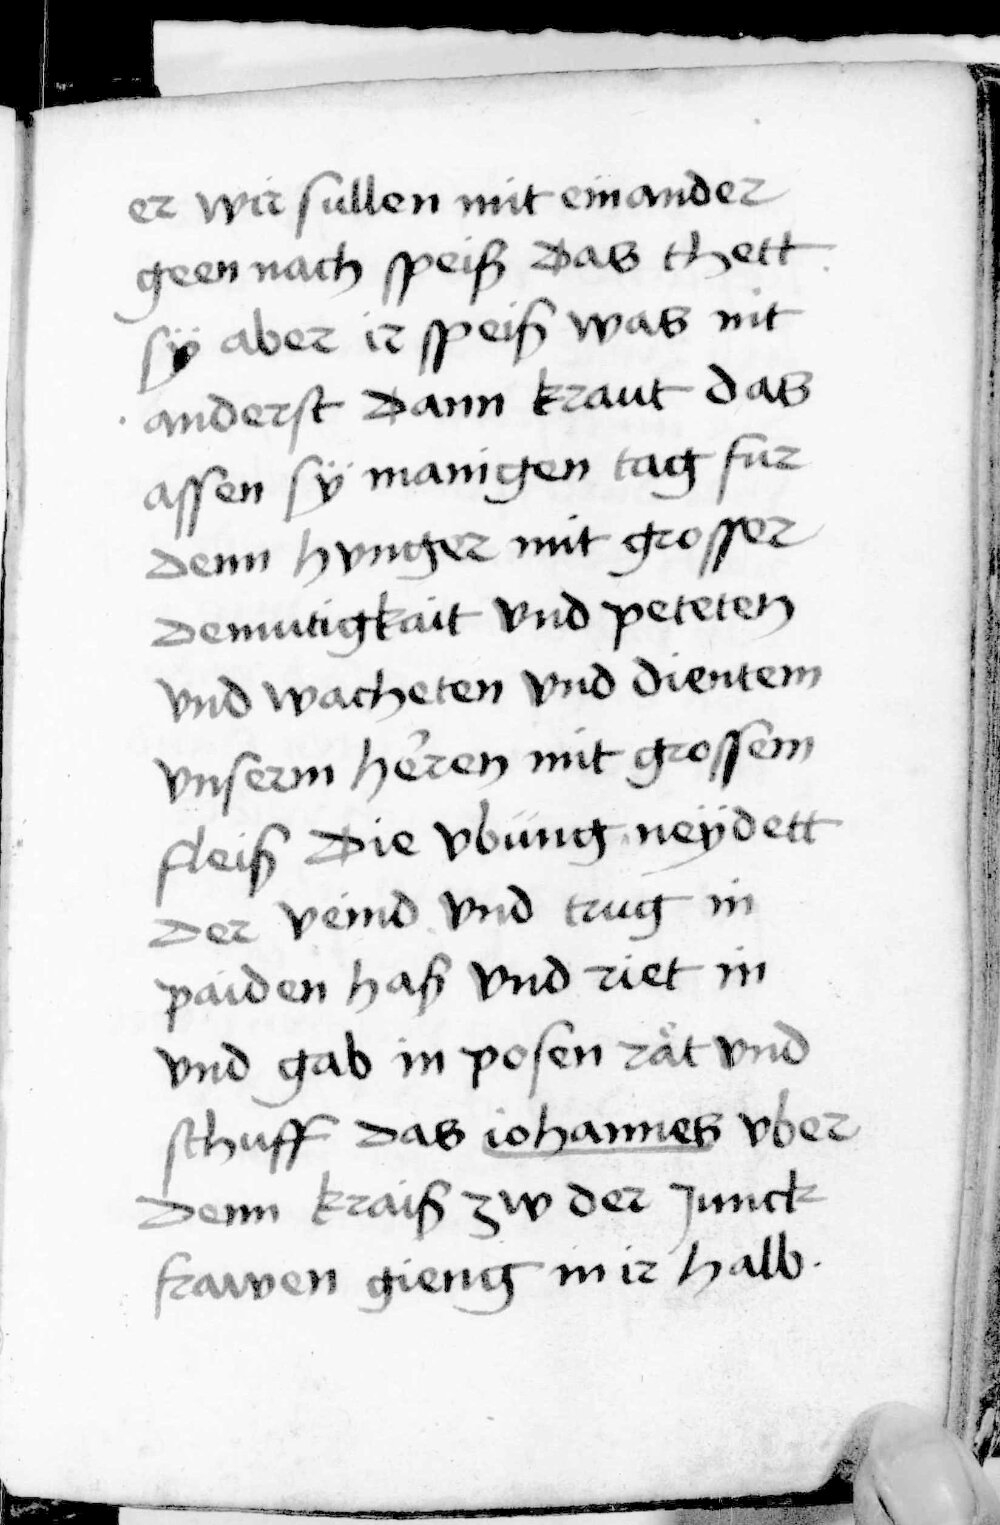 er wir sullen mit einander
geen nach speiß Das thett
sÿ aber ir speiß was nit
anderst Dann kraut das
assen sÿ manigen tag fur
Denn hvnger mit grosser
Demutigkait vnd peteten
vnd wacheten vnd dientem
vnserm herren mit grossem
fleiß Die vbung neÿdett
Der veind vnd trug in
paiden haß vnd riet in
vnd gab in posen rät vnd
schuff Das iohannes vber
Denn kraiß zw der Junck
frawen gieng in ir halb.